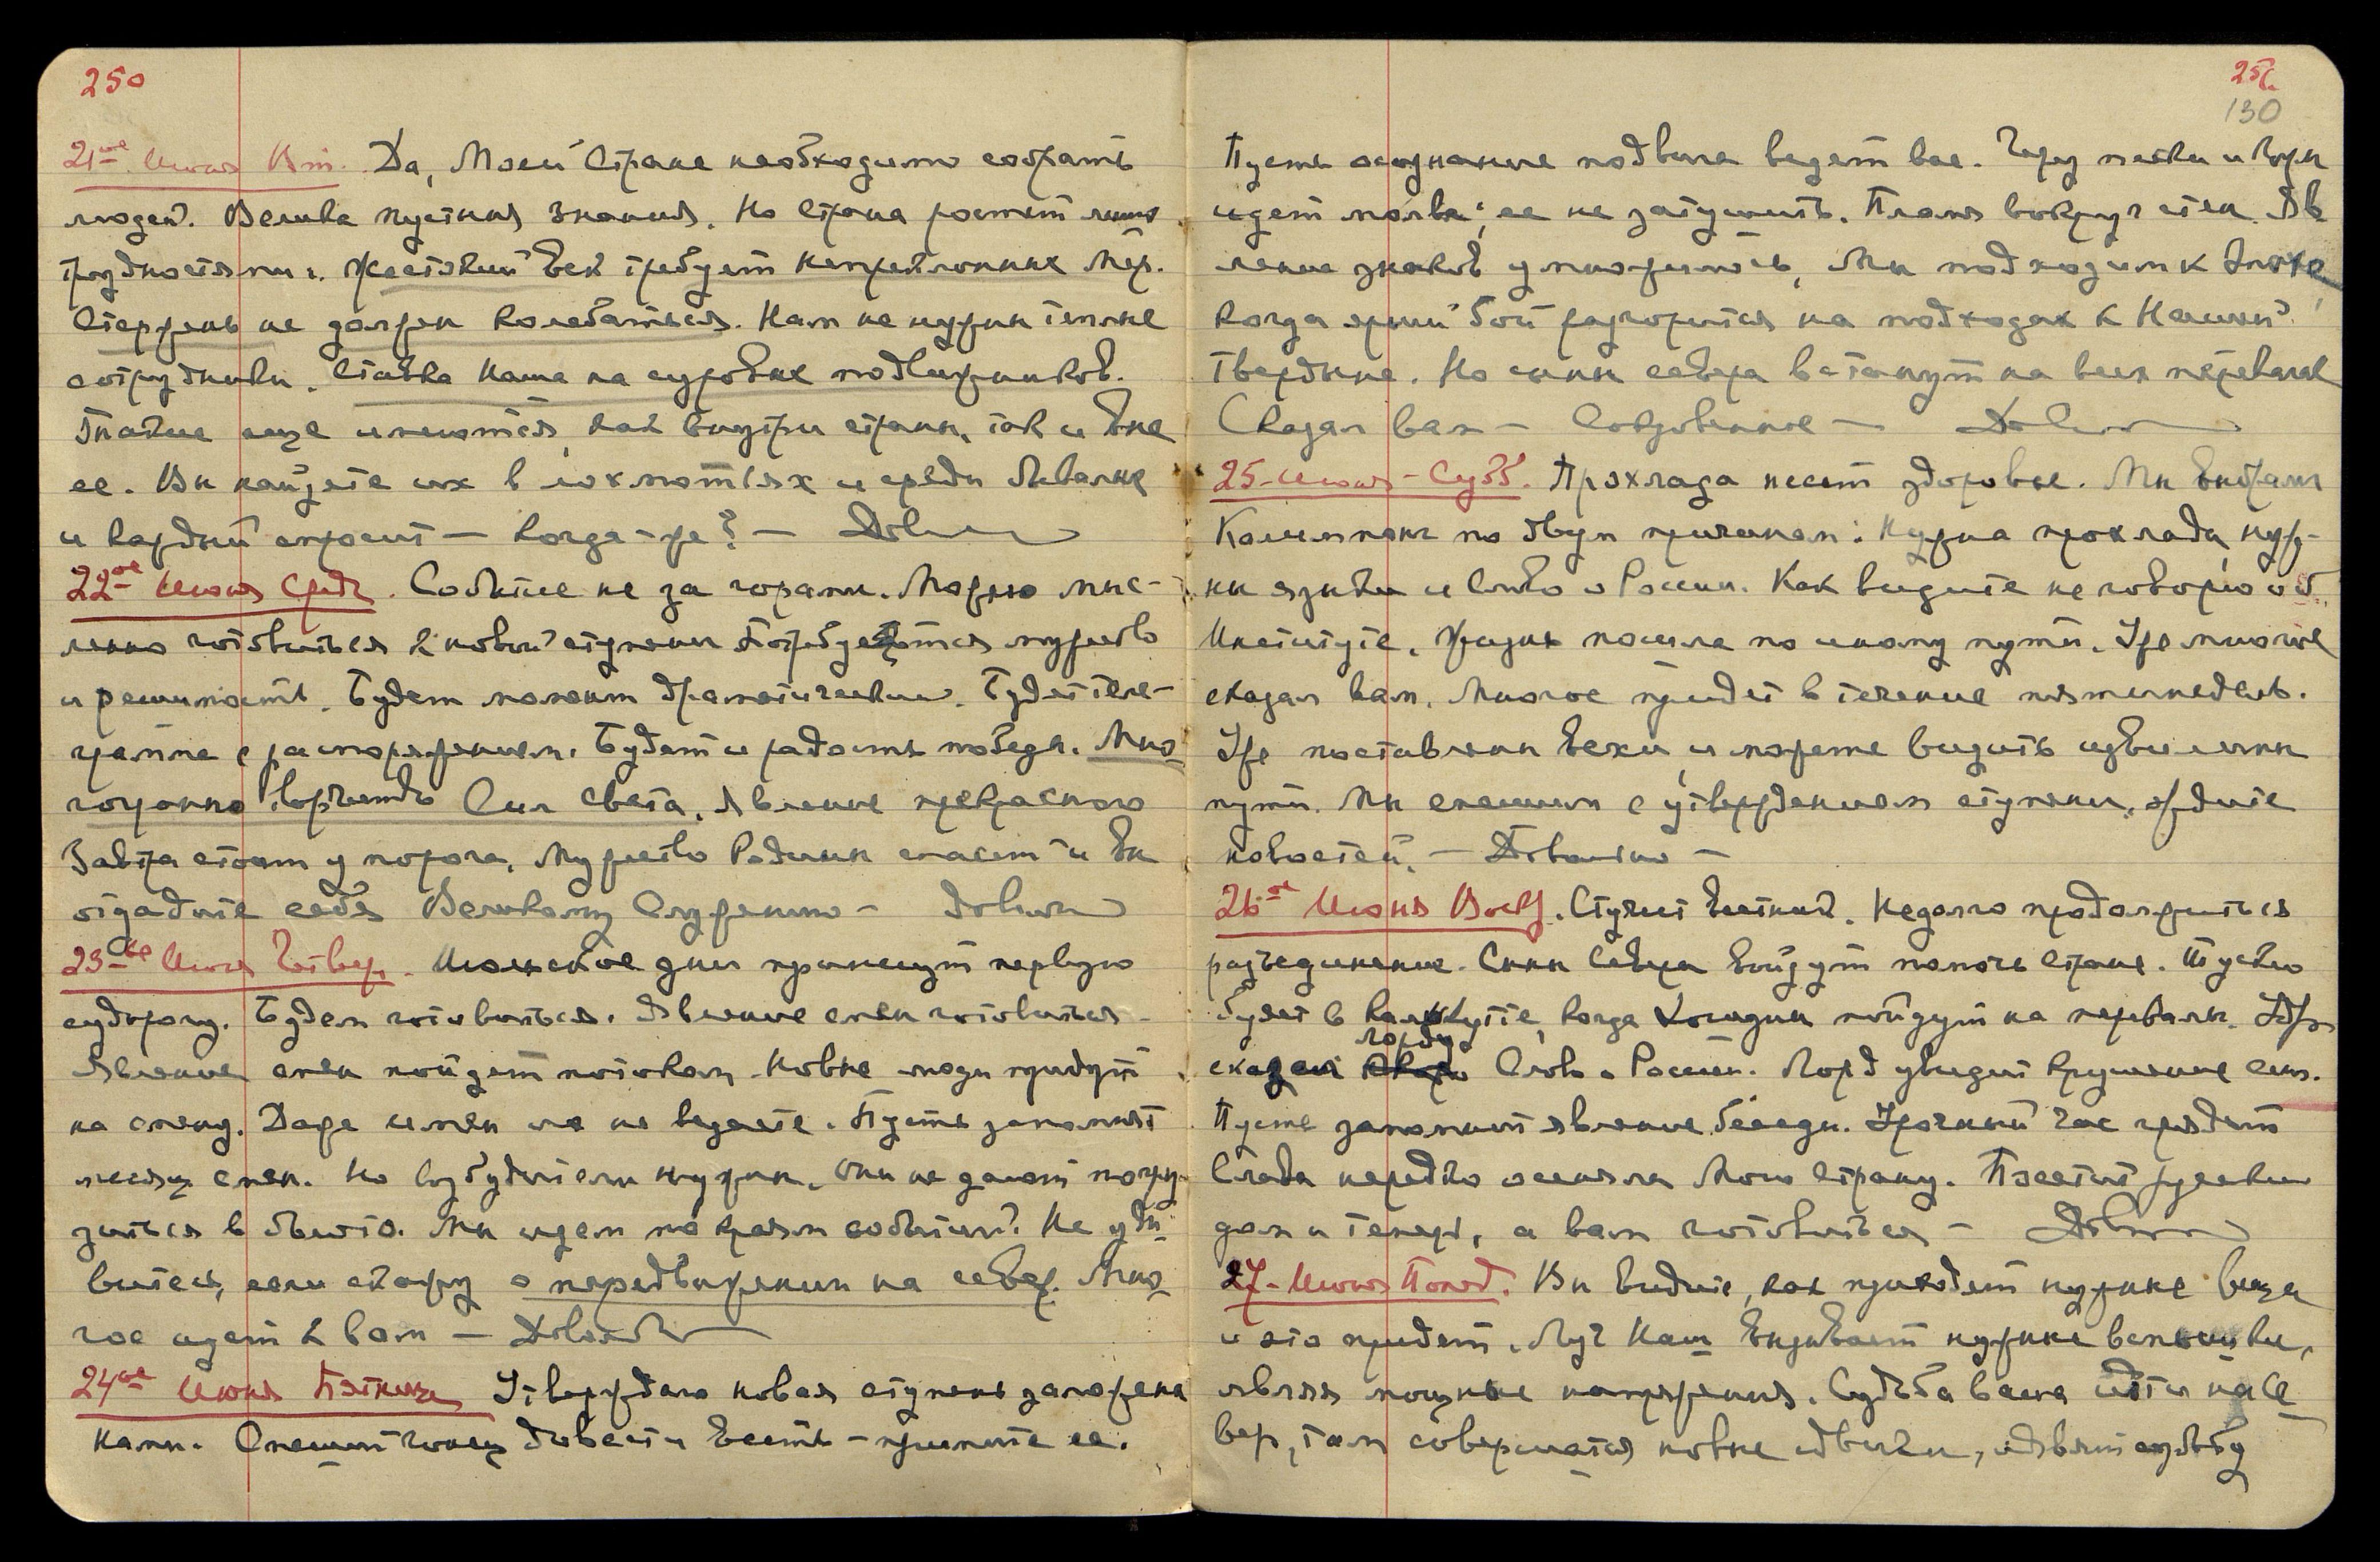 250
21ое Июня Вт. Да, Моей Стране необходимо собрать
людей. Велика пустыня знания. Но Страна ростет лишь
трудностями. Жестокий Век требует непреклонных Мер.
Стержень не должен колебаться. Нам не нужны теплые
сотрудники. Ставка Наша на суровых подвижников.
Такие еще имеются, как внутри страны, так и вне
ее. Вы найдете их в лохмотьях и среди
и каждый спросит — когда-же? — Довольно
22ое Июня Среда. Событие не за горами. Можно мыс-
ленно готовиться к новой ступени Потребуется мужество
и решимость. Будет момент драматический. Будет теле-
грамма с распоряжением. Будет и радость победы. Мно
гогранно торжество Сил Света. Явление прекрасного
Завтра стоит у порога. Мужество Родины спасет и Вы
отдадите себя Великому Служению — Довольно
23ье Июня Четвер. Июльские дни принесут первую
судорогу. Будем готовиться. Явление смен готовится —
Явление смен пойдет потоком Новые люди придут
на смену. Даже имен их не ведаете. Пусть запомнят
месяц смен. Но возбудители нужны. Они не дают погру-
зиться в болото. Мы идем по краям событий. Не уди
витесь, если скажу о передвижении на север. Мно
гое идет к вам — Довольно
24ое Июня Пятница Утверждаю новая ступень заложена
Нами. Спешит Гонец довести Весть — примите ее.
251.
130
Пусть осознание подвига ведет вас. Через пески и горы
идет молва, ее не затушить. Пламя вокруг стен. Яв
ление знаков умножилось, Мы подходим к Эпохе
когда ярый бой разгорится на подходах к Нашей
Твердыне. Но сыны севера встанут на всех перевалах
Сказал вам — Сокровенное — Довольно
25-Июня-Субб. Прохлада несет здоровье. Мы выбрали
Калимпонг по двум причинам: нужна прохлада, нуж-
ны языки и Слово о России. Как видите не говорю об
Институте. Жизнь пошла по иному пути. Уже многое
сказал вам. Многое придет в течение пяти недель.
Уже поставлены Вехи, и можете видеть извилины
пути. Мы спешим с утверждением ступени, ждите
новостей. — Довольно —
26ое Июня Воскр. Стучит Вестник. Недолго продолжится
разъединение. Сыны Севера Войдут помочь Стране. Пусто
будет в Калькутте, когда пойдут на перевалы.
лорду
сказал Слово о России. Лорд увидит крушение сил.
Пусть запомнит явление беседы. Урочный час грядет
Слава нередко осеняла Мою Страну. Посетит
дом и теперь, а вам готовиться — Довольно
27-Июня Понед. Вы видите, как приходят нужные вещи
и это придет. Луч Наш вызывает нужные вспышки,
являя мощные напряжения. Судьба ваша идти на Се
вер, там совершатся новые сдвиги,